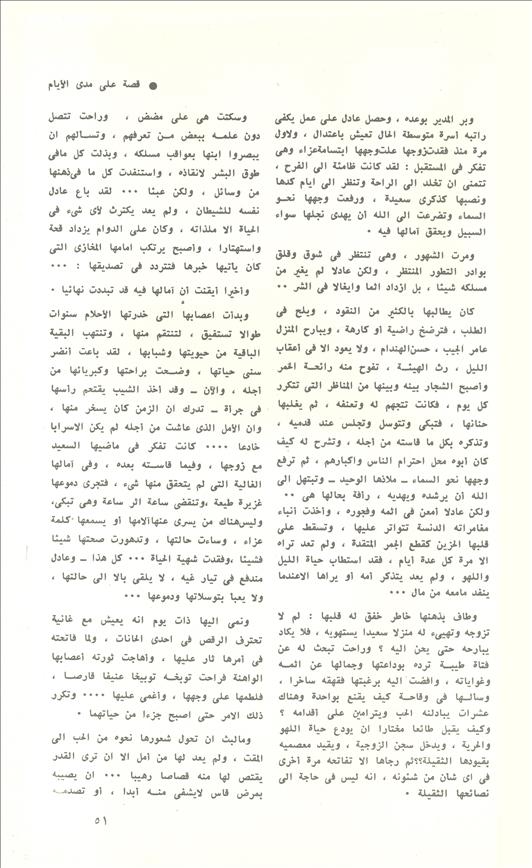 ● قصة على مدى الأيام
وبر المدير بوعده ، وحصل عادل على عمل يكفى
راتبه أسرة متوسطة الحال تعيش باعتدال ، ولاول
مرة منذ فقدتزوجها علتوجهها ابتسامةعزاء وهى
تفكر فى المستقبل : لقد كانت ظامئة الى الفرح ،
تتمنى ان تخلد الى الراحة وتنظر الى ايام كدها
ونصبها كذكرى سعيدة ، ورفعت وجهها نحو
السماء وتضرعت الى الله ان يهدى نجلها سواء
السبيل ويحقق آمالها فيه ٠
ومرت الشهور ، وهى تنتظر فى شوق وقلق
بوادر التطور المنتظر ، ولكن عادلا لم يغير من
مسلكه شيئا ، بل ازداد اثما وايغالا فى الشر ٠٠
كان يطالبها بالكثير من النقود ، ويلح فى
الطلب ، فترضخ راضية أو كارهة ، ويبارح المنزل
عامر الجيب ، حسنالهندام ، ولا يعود الا فى أعقاب
الليل ، رث الهيئة ، تفوح منه رائحة الخمر
وأصبح الشجار بينه وبينها من المناظر التى تتكرر
كل يوم ، فكانت تتجهم له وتعنفه ، ثم يغلبها
حنانها ، فتبكى وتتوسل وتجلس عند قدميه ،
وتذكره بكل ما قاسته من أجله ، وتشرح له كيف
كان أبوه محل احترام الناس واكبارهم ، ثم ترفع
وجهها نحو السماء ـ ملاذها الوحيد ـ وتبتهل الى
الله أن يرشده ويهديه ، رأفة بحالها هى ٠٠
ولكن عادلا أمعن فى اثمه وفجوره ، وأخذت أنباء
مغامراته الدنسة تتواتر عليها ، وتسقط على
قلبها الحزين كقطع الجمر المتقدة ، ولم تعد تراه
الا مرة كل عدة أيام ، فقد استطاب حياة الليل
واللهو ، ولم يعد يتذكر أمه أو يراها الاعندما
ينفد مامعه من مال ٠٠٠
وطاف بذهنها خاطر خفق له قلبها : لم لا
تزوجه وتهيىء له منزلا سعيدا يستهويه ، فلا يكاد
يبارحه حتى يحن اليه ؟ وراحت تبحث له عن
فتاة طيبة ترده بوداعتها وجمالها عن اثمه
وغواياته ، وافضت اليه برغبتها فقهقه ساخرا ،
وسألها فى وقاحة كيف يقنع بواحدة وهناك
عشرات يبادلنه الحب ويترامين على أقدامه ؟
وكيف يقبل طائعا مختارا ان يودع حياة اللهو
والحرية ، ويدخل سجن الزوجية ، ويقيد معصميه
بقيودها الثقيلة؟؟ثم رجاها الا تفاتحه مرة أخرى
فى اى شان من شئونه ، انه ليس فى حاجة الى
نصائحها الثقيلة ٠
وسكتت هى على مضض ، وراحت تتصل
دون علمه ببعض من تعرفهم ، وتسالهم ان
يبصروا ابنها بعواقب مسلكه ، وبذلت كل مافى
طوق البشر لانقاذه ، واستنفدت كل ما فىذهنها
من وسائل ، ولكن عبثا ٠٠٠ لقد باع عادل
نفسه للشيطان ، ولم يعد يكترث لأى شىء فى
الحياة الا ملذاته ، وكان على الدوام يزداد قعة
واستهتارا ، وأصبح يرتكب امامها المخازى التى
كان يأتيها خبرها فتتردد فى تصديقها : ٠٠٠
وأخيرا أيقنت أن آمالها فيه قد تبددت نهائيا ٠
وبدأت اعصابها التى خدرتها الأحلام سنوات
طوالا تستفيق ، لتنتقم منها ، وتنتهب البقية
الباقية من حيويتها وشبابها ، لقد باعت انضر
سنى حياتها ، وضحت براحتها وكبريائها من
أجله ، والآن ـ وقد أخذ الشيب يقتحم رأسها
فى جرأة ـ تدرك ان الزمن كان يسخر منها ،
وان الأمل الذى عاشت من أجله لم يكن الاسرابا
خادعا ٠٠٠٠ كانت تفكر فى ماضيها السعيد
مع زوجها ، وفيما قاسته بعده ، وفى آمالها
الغالية التى لم يتحقق منها شىء ، فتجرى دموعها
غزيرة طيعة ،وتنقضى ساعة اثر ساعة وهى تبكى،
وليسهناك من يسرى عنهاآلامها أو يسمعها كلمة
عزاء ، وساءت حالتها ، وتدهورت صحتها شيئا
فشيئا ،وفقدت شهية الحياة ٠٠٠ كل هذا ـ وعادل
مندفع فى تيار غيه ، لا يلقى بالا الى حالتها ،
ولا يعبأ بتوسلاتها ودموعها ٠٠٠
ونمى اليها ذات يوم انه يعيش مع غانية
تحترف الرقص فى احدى الحانات ، ولما فاتحته
فى أمرها ثار عليها ، وأهاجت ثورته أعصابها
الواهنة فراحت توبخه توبيخا عنيفا قارصا ،
فلطمها على وجهها ، وأغمى عليها ٠٠٠٠ وتكرر
ذلك الامر حتى اصبح جزءا من حياتهما ٠
ومالبث ان تحول شعورها نحوه من الحب الى
المقت ، ولم يعد لها من أمل الا ان ترى القدر
يقتص لها منه قصاصا رهيبا ٠٠٠ ان يصيبه
بمرض قاس لايشفى منه أبدا ، أو تصدمه
٥١